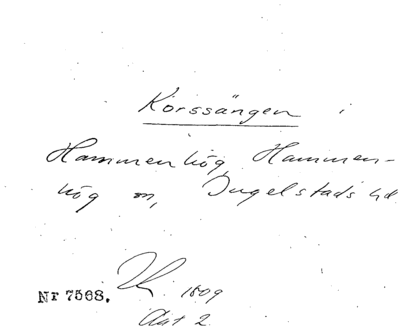 Körssången i
Hammenhög, Hammen-
hög sn, Ingelstads hd
Nr 7568. 1809
Aat 2